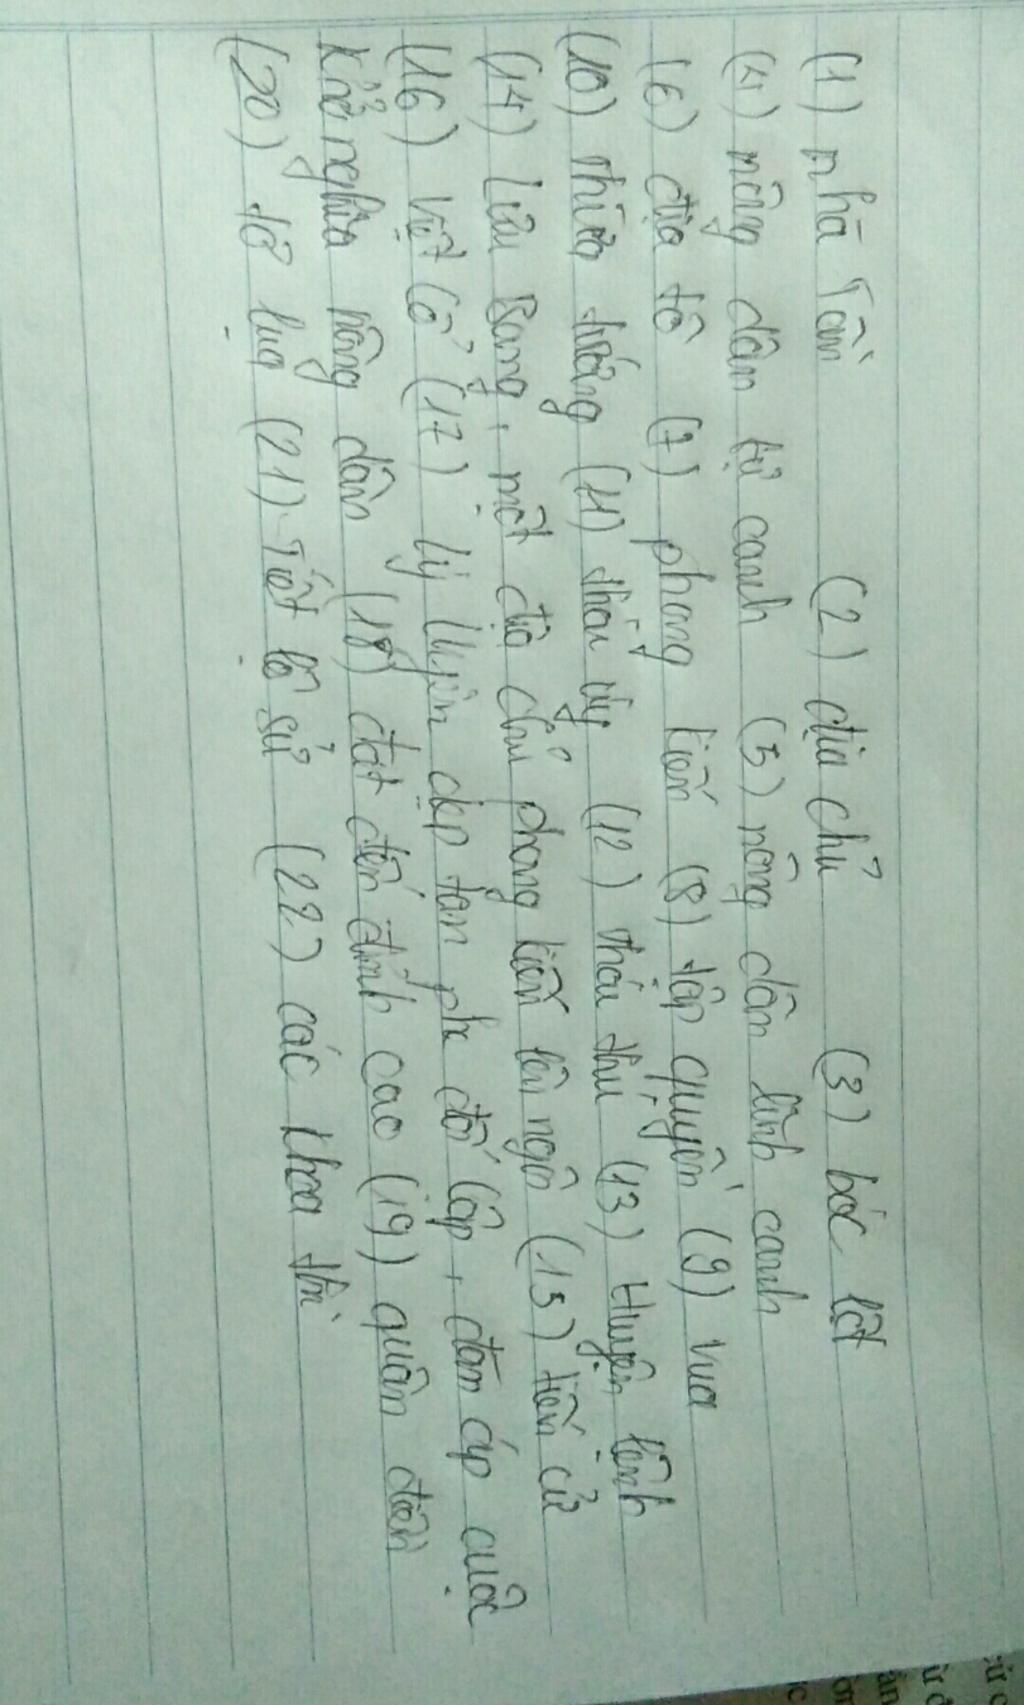 (1) nhà Tần (2) địa chủ (3) bóc lột
(4) nông dân tự canh (5) nông dân lĩnh canh
(6) địa tô (7) phong kiến (8) tập quyền (9) vua
(10) thừa tướng (11) thái úy (12) thái thú (13) Huyện lệnh
(14) Lưu Bang, một địa chủ phong kiến lên ngôi (15) tiến cử
(16) Việt Cổ (17) Lý Uyên dẹp tan phe đối lập, đàn áp cuộc
khởi nghĩa nông dân (18) đạt đến đỉnh cao (19) quân điền
(20) tơ lụa (21) Tiết độ sứ (22) các khoa thi